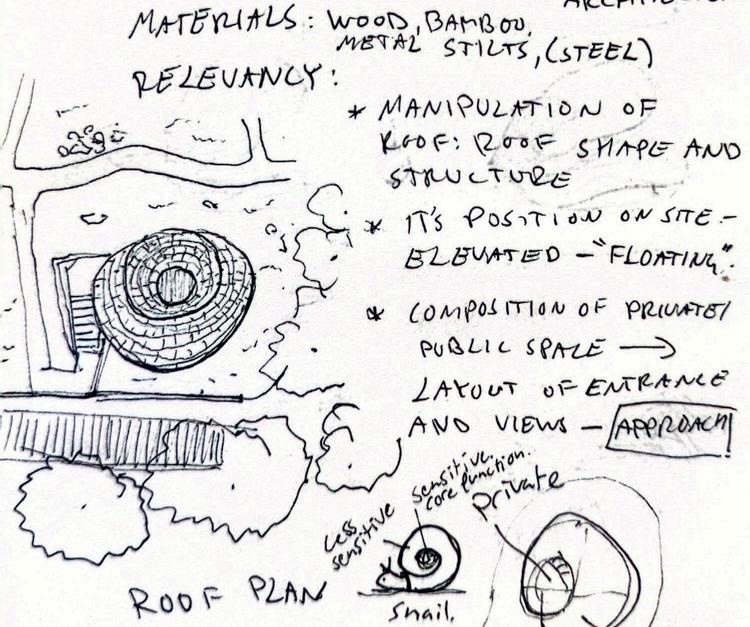 MATERIALS: WOOD, BAMBOO,
METAL STILTS, (STEEL)
RELEVANCY:
* MANIPULATION OF
ROOF: ROOF SHAPE AND
STRUCTURE
* IT'S POSITION ON SITE -
ELEVATED - "FLOATING".
* COMPOSITION OF PRIVATE/
PUBLIC SPACE →
LAYOUT OF ENTRANCE
AND VIEWS - APPROACH!
sensitive.
core function.
Less
sensitive
private
Snail.
ROOF PLAN